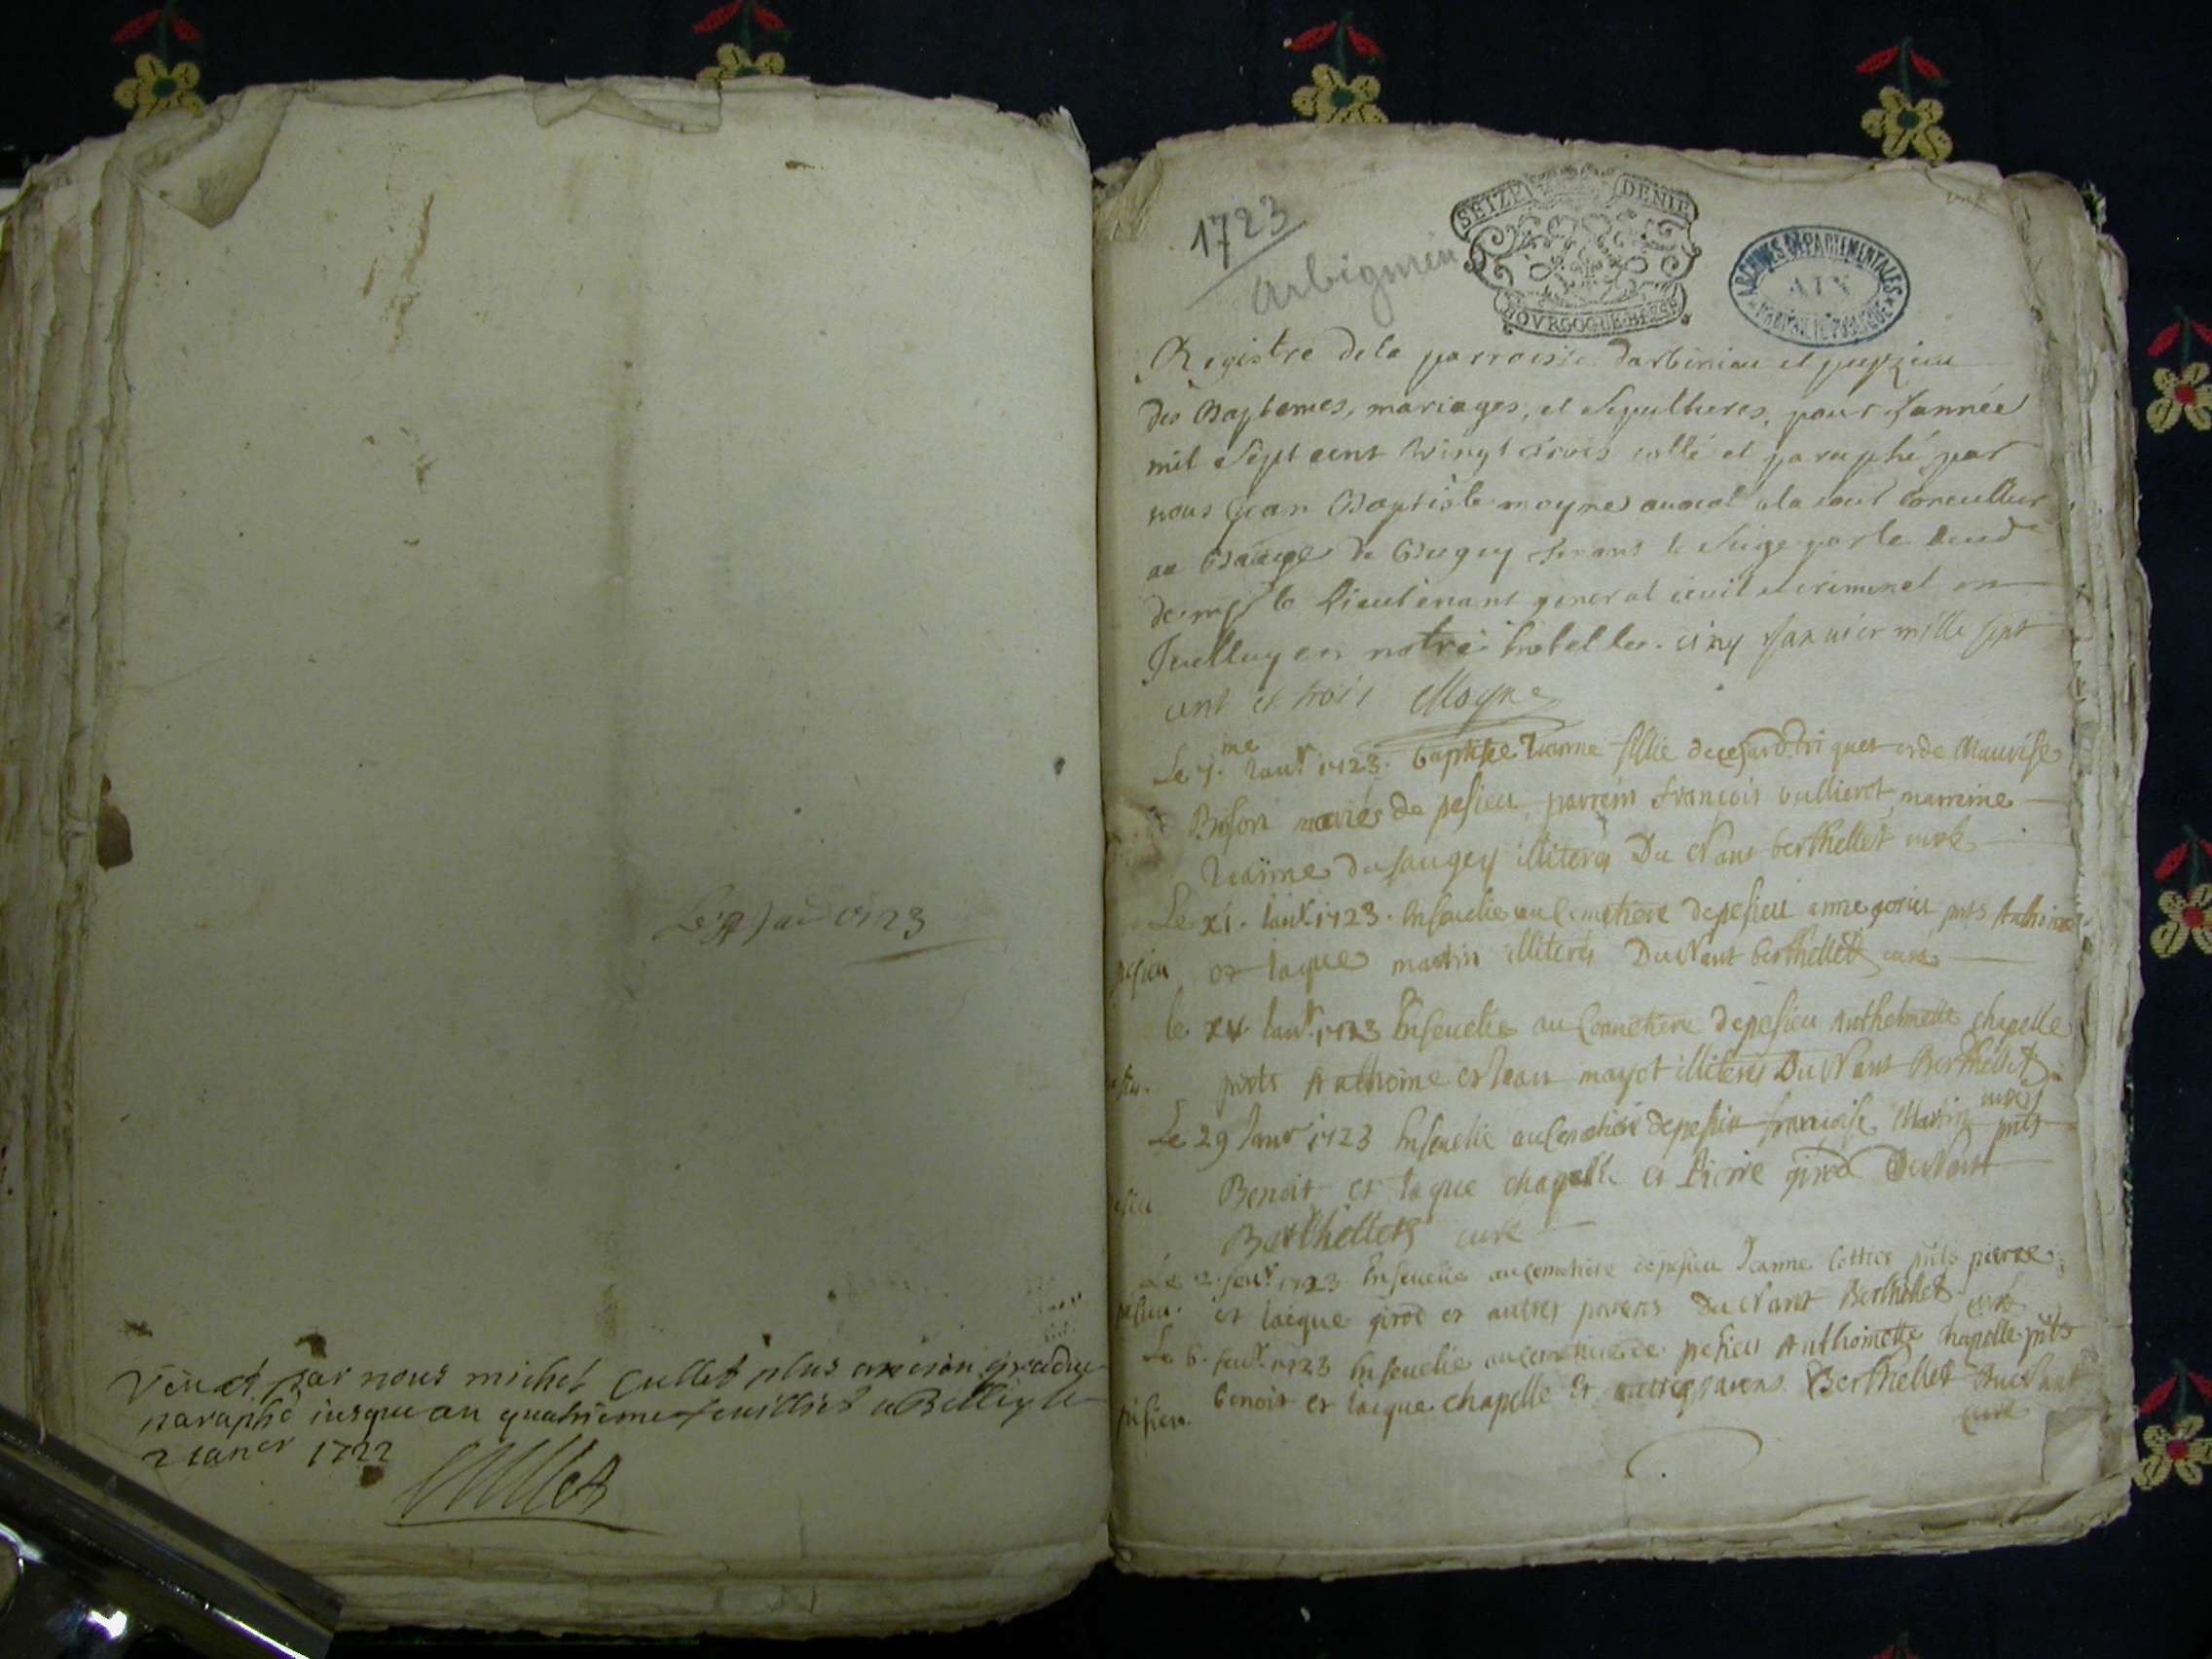 Le 1723
Veu et par nous michel Cullet plus ancien gradue
paraphé iusque au quatrieme feuillet a Belley le
2 Ianer 1722
Cullet
1723
Arbignieu
SEIZE DENIE
BOVRGOGNE BRESSE
ARCHIVES DEPARTEMENTALES
AIN
Registre de la parroisse darbinieu et peyzieu
des Baptemes, mariages, et sepultures, pour l'année
mil sept cent vingt trois cotté et paraphé par
nous Jean Baptiste moyne avocat a la cour conceiller
au Bailage de Bugey tenant le siege par le
de mr le Lieutenant general civil et criminel
en notre hotel le cinq Janvier mille sept
cent et trois Moyne
Le 7.me Ianr 1723. baptisée Ianne fille de et de Maurise
Brison mariés de pesieu, parrein françois vullierot marreine
Ianne du saugey illiterés Du Nant berthellet curé
Le XI. Ianr 1723. Ensevelie au Cemetiere de pesieu anne pnts Anthoine
pesieu et Iaque martin illiterés Du Nant berthellet curé
le XV Ianr 1723 Ensevelie au Cemetiere de pesieu Anthelmette chapelle
pnts Anthoine et Iean mayot illiterés Du Nant Berthellet
curé
Le 29 Ianr 1723 Ensevelie au Cemetiere de pesieu françoise Martin pnts
Benoit et Iaque chapelle et Pierre girod Du Nant
Berthellet curé
Le 2. fevr 1723 Ensevelie au cemetiere de pesieu Ianne Cottier pnts pierre
pesieu. et Iacque girod et autres parens Du Nant Berthellet
curé
Le 6. fevr 1723 Ensevelie au cemetiere de pesieu Anthoinette chapelle pnts
pesieu. benoit et Iacque chapelle Et autres parens Berthellet Du Nant
curé